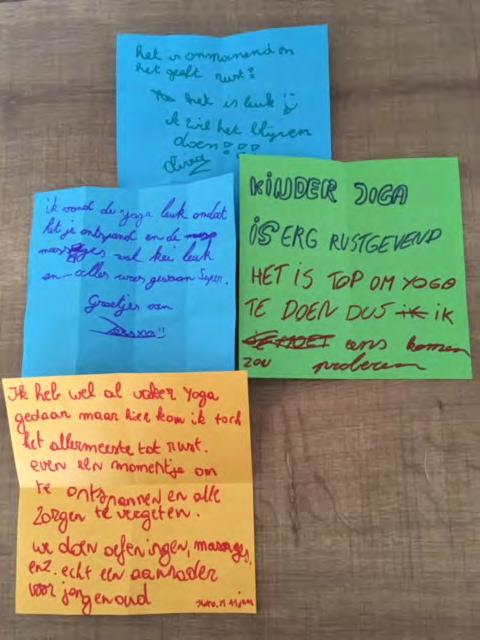 het is ontspannend en
het geeft rust!
het is leuk
ik wil het blijven
doen!!!
ik vond de yoga leuk omdat
het je ontspand en de
massages wel kei leuk
en alles was gewoon super.
Groetjes van
KINDER JOGA
IS ERG RUSTGEVEND
HET IS TOP OM YOGA
TE DOEN DUS ik IK
ZOU eens komen
proberen
Ik heb wel al vaker yoga
gedaan maar hier kom ik toch
het allermeeste tot rust.
even een momentje om
te ontspannen en alle
zorgen te vergeten.
we doen oefeningen, massages,
enz. echt een aanrader
voor jong en oud